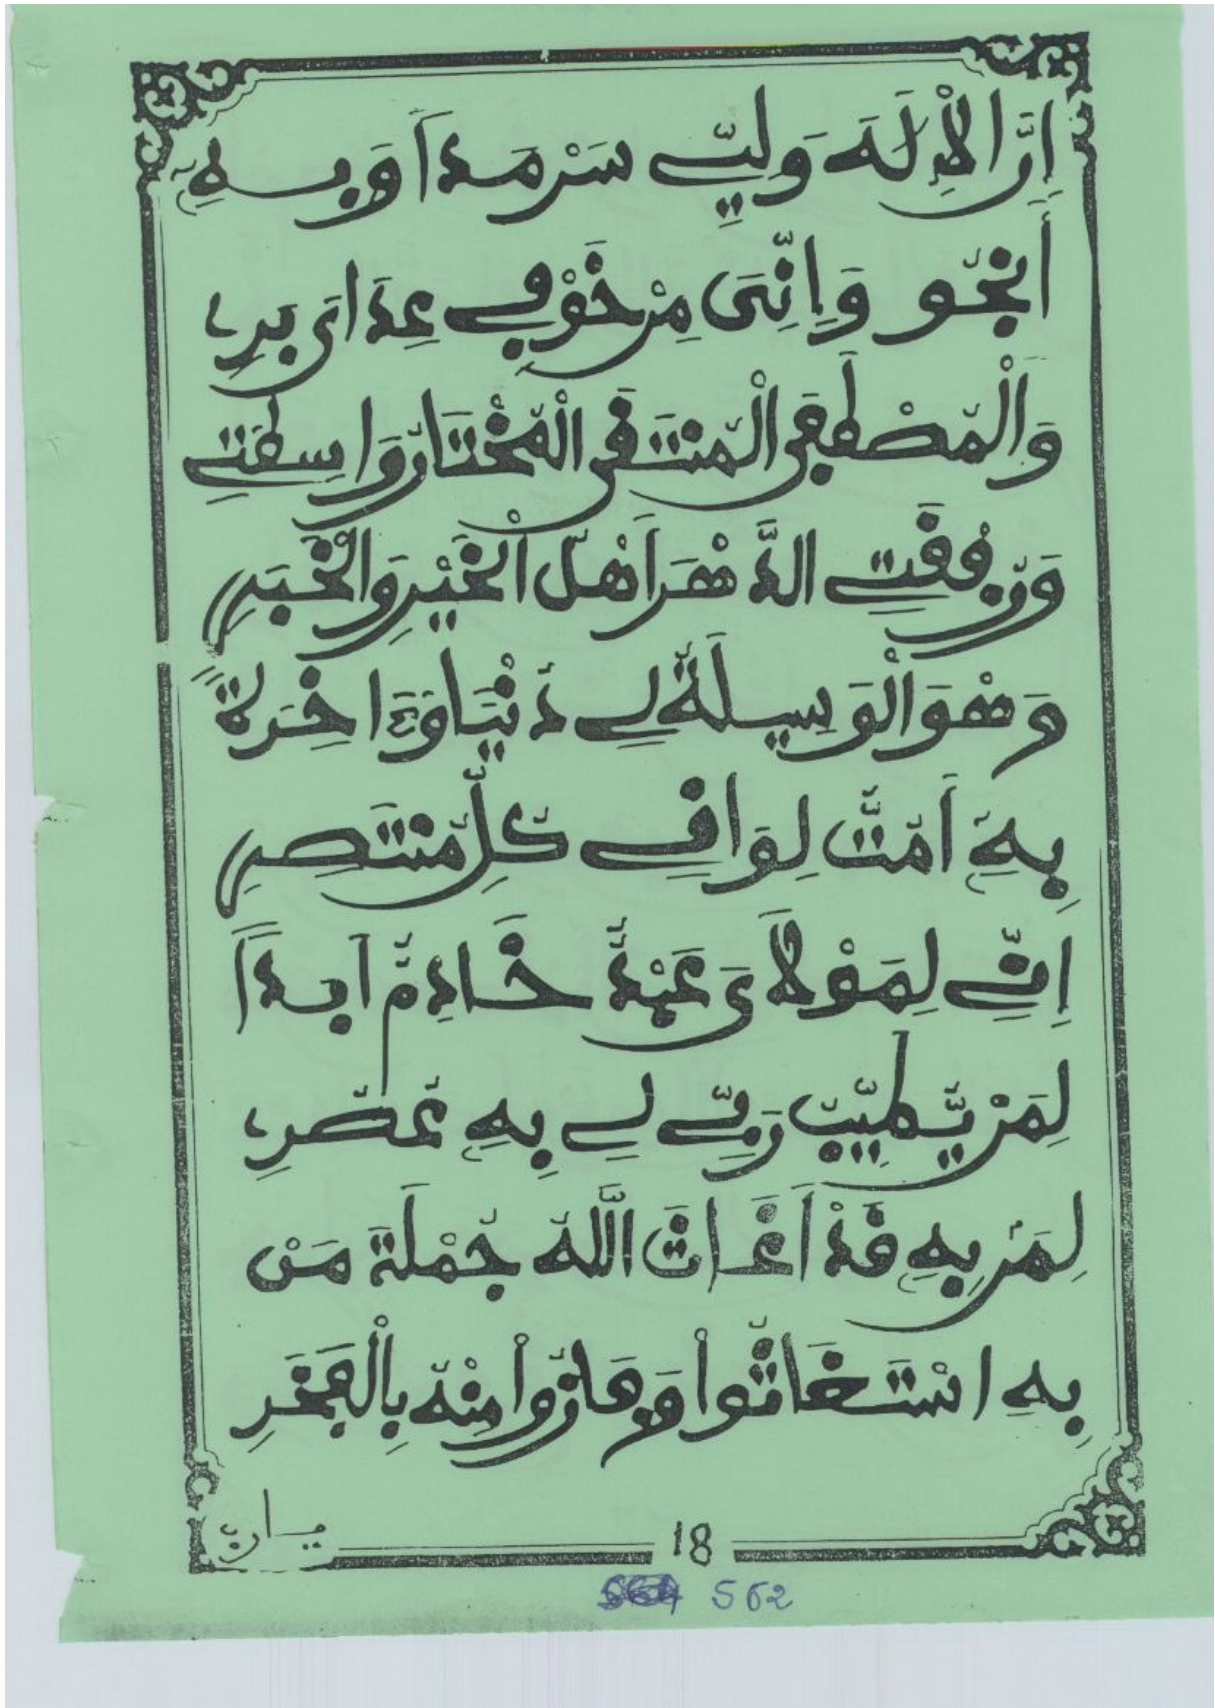 إِنَّ الْإِلَهَ وَلِيِّي سَرْمَدًا وَبِهِ
أَنْجُو وَإِنِّيَ مِنْ خَوْفِي عِدَايَ بَرِي
وَالْمُصْطَفَى الْمُنْتَقَى الْمُخْتَارُ وَاسِطَتِي
وَرُفْقَتِي الدَّهْرَ أَهْلُ الْخَيْرِ وَالْخَبَرِ
وَهْوَ الْوَسِيلَةُ لِي دُنْيَا وَءَاخِرَةً
بِهِ أَمُتُّ لِوَافِي كُلِّ مُنْتَصِرِ
إِنِّي لِمَوْلَايَ عَبْدٌ خَادِمٌ أَبَدًا
لِمَنْ يُطَيِّبُ رَبِّي لِي بِهِ عُصُرِي
لِمَنْ بِهِ قَدْ أَغَاثَ اللَّهُ جُمْلَةَ مَنْ
بِهِ اسْتَغَاثُوا وَفَازُوا مِنْهُ بِالْفَخَرِ
18
562